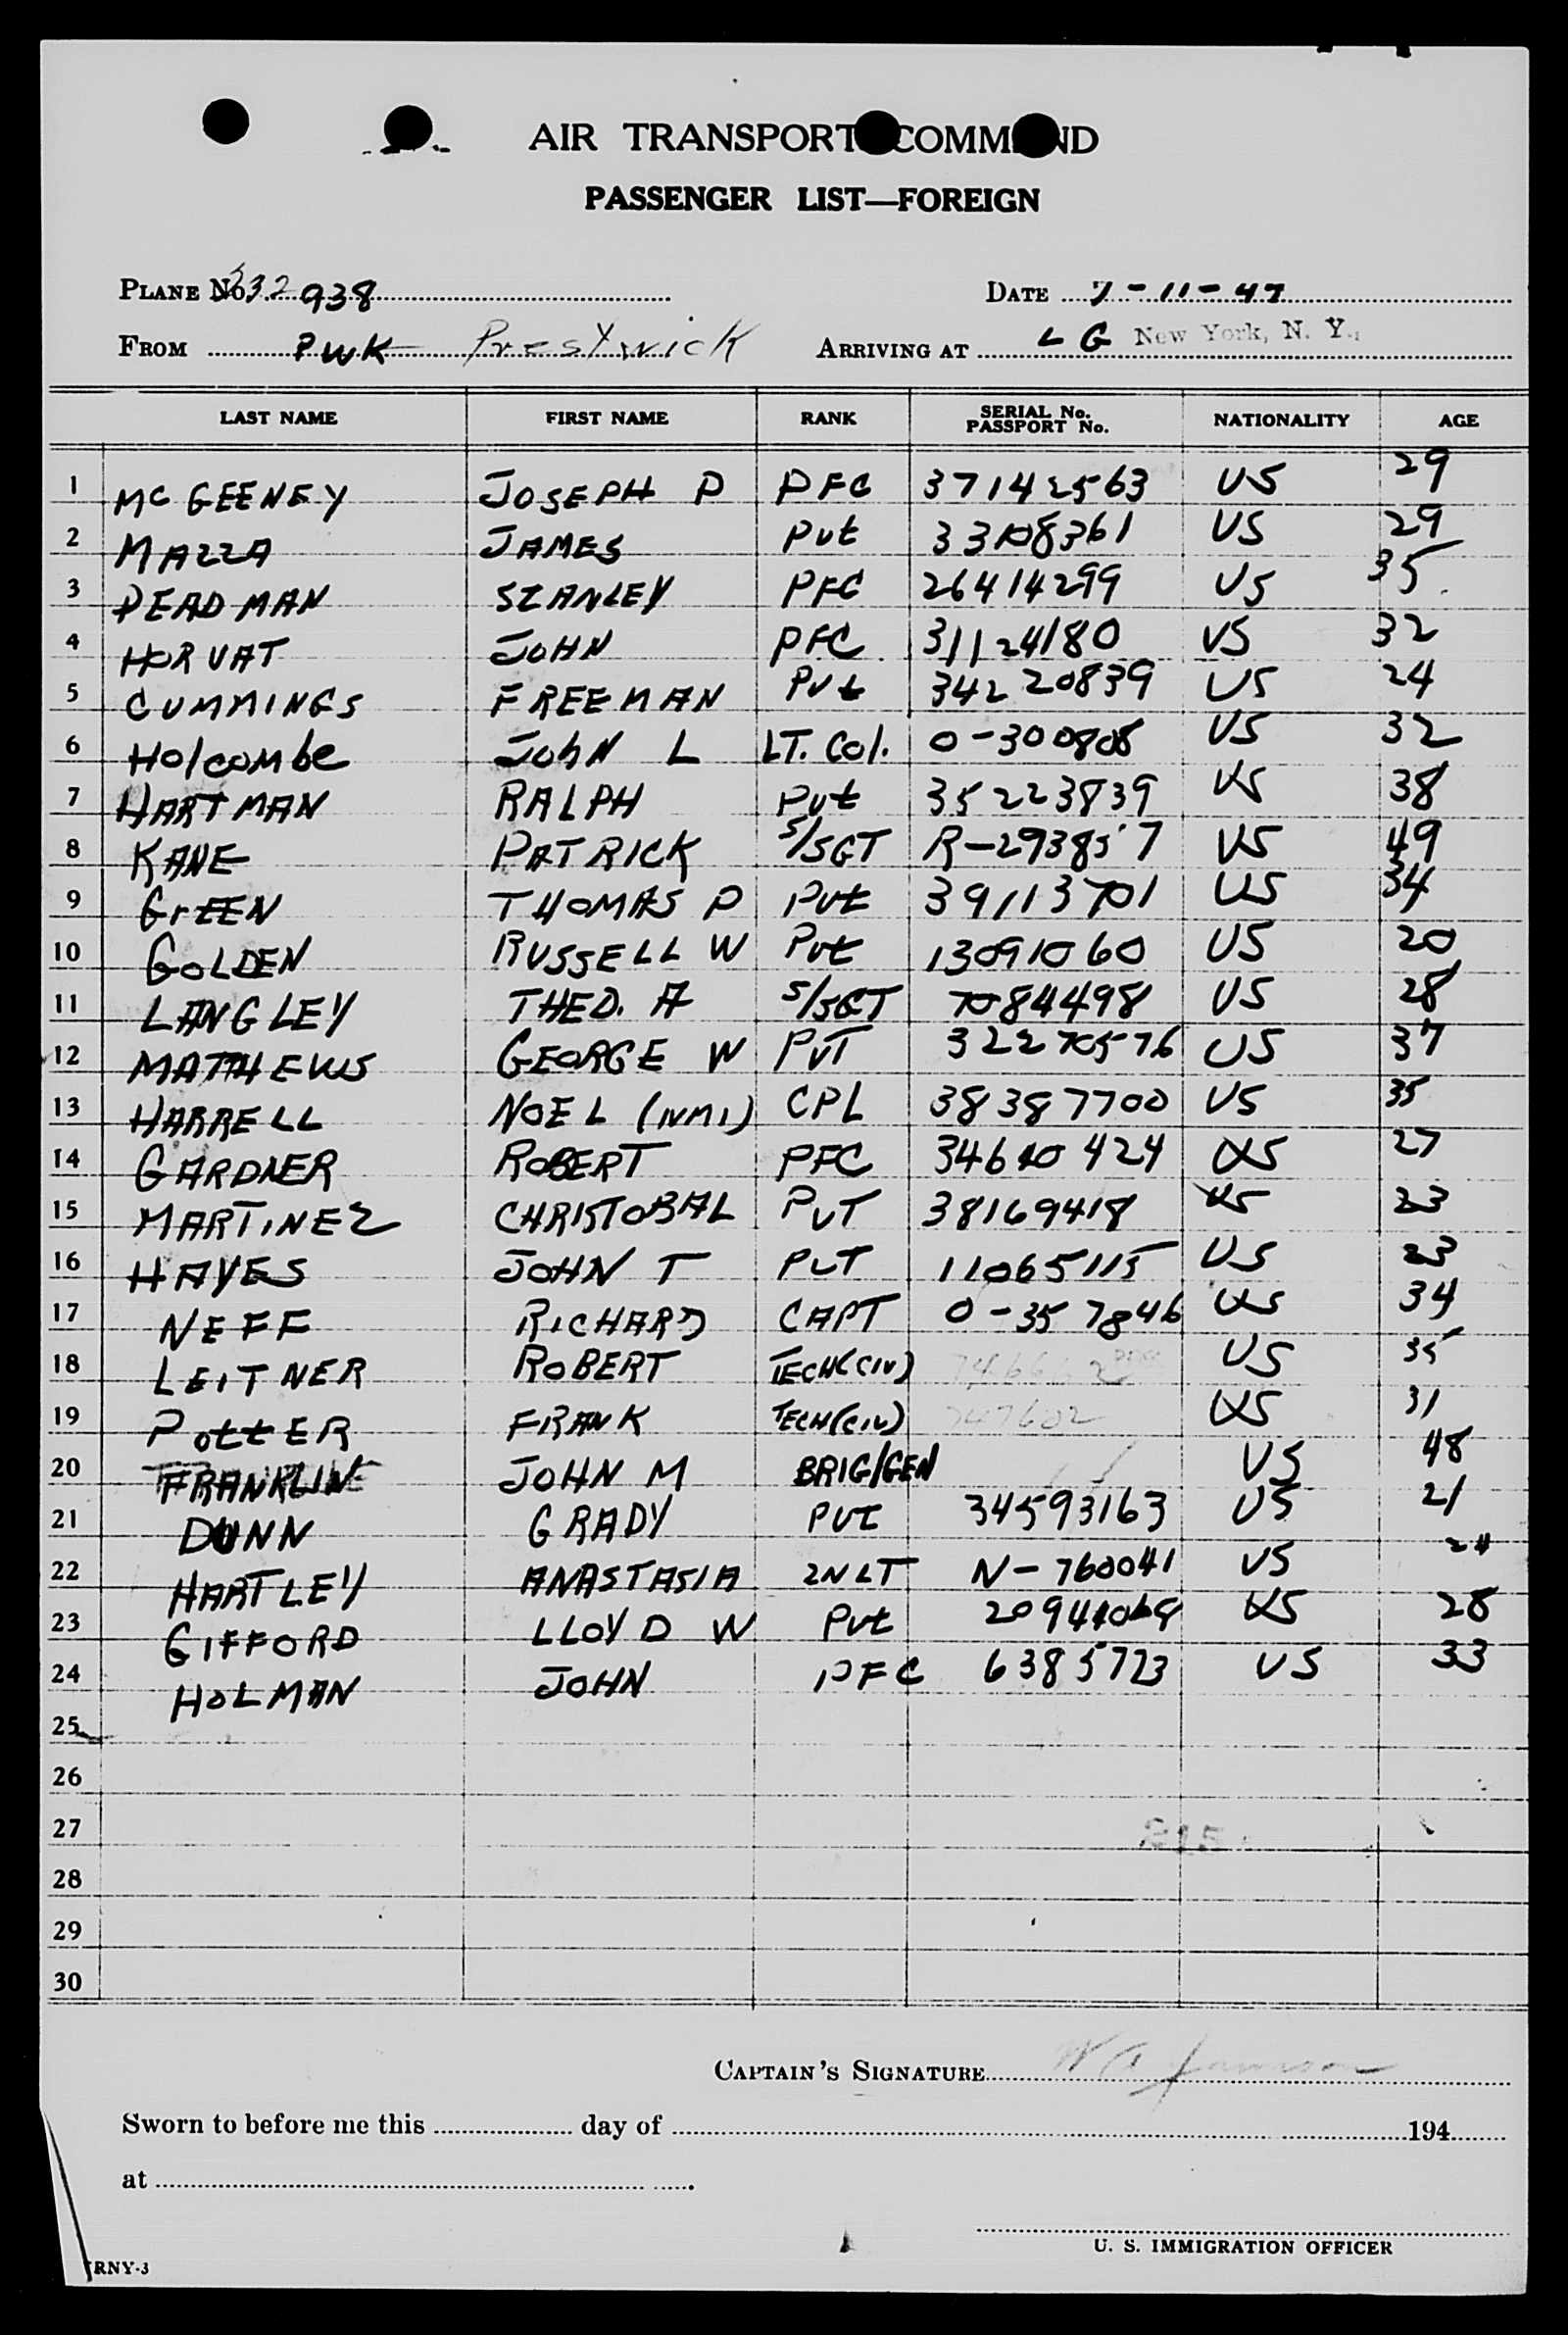 AIR TRANSPORT COMMAND
PASSENGER LIST—FOREIGN
PLANE No. 332938 DATE 7-11-47
FROM PWK Prestwick ARRIVING AT LG New York, N. Y.,
LAST NAME FIRST NAME RANK SERIAL No. PASSPORT No. NATIONALITY AGE
1 MCGEENEY JOSEPH P PFC 37142563 US 29
2 MAZZA JAMES Pvt 33108361 US 29
3 DEADMAN STANLEY PFC 26414299 US 35
4 HORVAT JOHN PFC 31124180 US 32
5 CUMMINGS FREEMAN Pvt 34220839 US 24
6 Holcombe JohN L LT. Col. O-300808 US 32
7 HARTMAN RALPH Pvt 35223839 US 38
8 KANE PATRICK S/SGT R-293857 US 49
9 GrEEN THOMAS P Pvt 39113701 US 34
10 GOLDEN RUSSELL W Pvt 13091060 US 20
11 LANGLEY THED. A S/SGT 7084498 US 28
12 MATTHEWS GEORGE W PVT 32270576 US 37
13 HARRELL NOEL (NMI) CPL 38387700 US 35
14 GARDNER ROBERT PFC 34610424 US 27
15 MARTINEZ CHRISTOBAL PVT 38169418 US 23
16 HAYES JOHN T PVT 11065115 US 23
17 NEFF RICHARD CAPT O-357846 US 34
18 LEITNER ROBERT TECH(CIV) US 35
19 PottER FRANK TECH(CIV) 747602 US 31
20 FRANKLIN JOHN M BRIG/GEN US 48
21 DUNN GRADY PVT 34593163 US 21
22 HARTLEY ANASTASIA 2NLT N-760041 US 24
23 GIFFORD LLOYD W Pvt 20941069 US 28
24 HOLMAN JOHN PFC 6385723 US 33
25
26
27
28
29
30
CAPTAIN'S SIGNATURE
Sworn to before me this day of 194
at
U. S. IMMIGRATION OFFICER
RNY-3